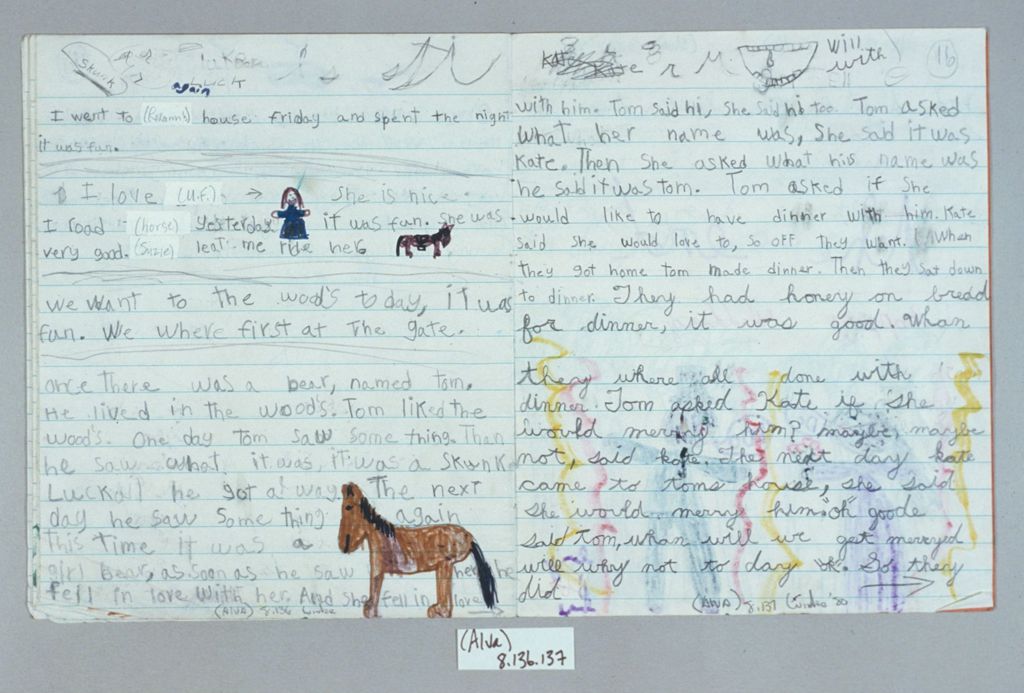 Skunk
LUCK
again
I went to (Roann's) house friday and spent the night
it was fun.
I love (U.F.) → She is nice
I road (horse) yesterday it was fun. She was
very good. (Suzie) leat me ride her
we want to the wood's to day, it was
fun. We where first at the gate.
once There was a bear, named tom.
He lived in the wood's. Tom liked the
wood's. One day tom saw some thing. Then
he saw what it was, it was a Skunk
Luckal he got a way The next
day he saw some thing again
This time it was a
girl bear, as soon as he saw her he
fell in love with her. And she fell in love
(Alva) 8.136
will
with
16
with him. Tom said hi, she said hi too. Tom asked
what her name was, She said it was
Kate. Then She asked what his name was
he said it was tom. Tom asked if She
would like to have dinner with him. Kate
said She would love to, so OFF they want. When
they got home tom made dinner. Then they sat down
to dinner. They had honey on bredd
for dinner, it was good. Whan
they where all done with
dinner Tom asked Kate if she
would merry him? maybe, maybe
not, said kate. The next day kate
came to toms house, she said
she would merry him. oh goode
said Tom, whan will we get merryed
will why not to day ok. So they
did
(Alva) 8.137
(Alva)
8.136.137